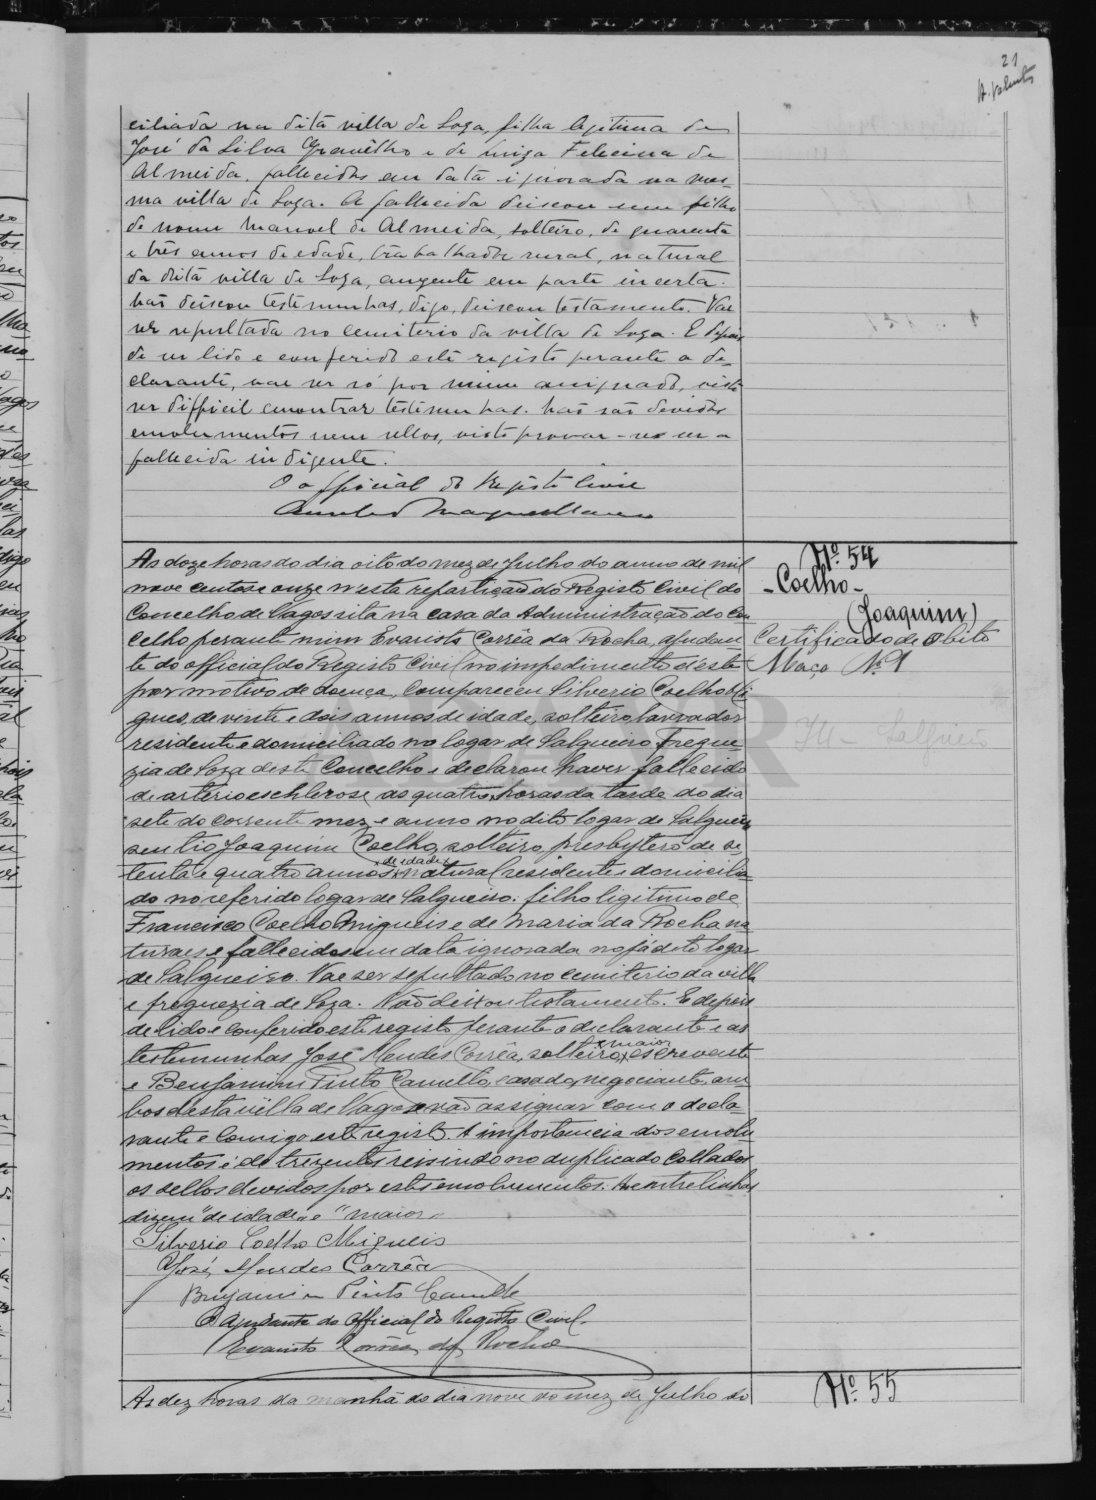 21
ciliada na dita villa de Soza, filha legitima de
José da Silva Gravilho e de Luiza Felicina de
Almeida, fallecidos em data ignorada na mes-
ma villa de Soza. A fallecida deixou um filho
de nome Manoel de Almeida, solteiro, de quarenta
e três annos de edade, trabalhador rural, natural
da dita villa de Soza, auzente em parte incerta.
Não deixou testemunhas, digo, deixou testamento. Vae
ser sepultada no cemiterio da villa de Soza. E depois
de ser lido e conferido este registo perante o de-
clarante, vae ser só por mim assignado, visto
ser difficil encontrar testemunhas. Não são devidos
emolumentos nem sellos, visto provar-se ser a
fallecida indigente.
O official do Registo Civil
Nº 54
Coelho
(Joaquim)
Certificado de obito
Maço Nº 1
As doze horas do dia oito do mez de Julho do anno de mil
nove centos e onze n'esta repartição do Registo Civil do
Concelho de Vagos sita na casa da Administração do Con
celho perante mim Evaristo Corrêa da Rocha, ajudan
te do official do Registo Civil no impedimento d'este
por motivo de doença, compareceu Silverio Coelho Mi
gues, de vinte e dois annos de idade, solteiro lavrador
residente e domiciliado no logar de Salgueiro fregue
zia de Soza deste Concelho e declarou haver fallecido
de arterioeschlerose, as quatro horas da tarde do dia
sete do corrente mez e anno no dito logar de Salgueiro
seu tio Joaquim Coelho, solteiro, presbytero de se
tenta e quatro annos de edade natural residente e domicilia
do no referido logar de Salgueiro. filho ligitimo de
Francisco Coelho Migueis e de Maria da Rocha na
turaes e fallecidos em data ignorada no já dito logar
de Salgueiro. Vae ser sepultado no cemiterio da villa
e freguezia de Soza. Não deixou testamento. E depois
de lido e conferido este registo perante o declarante e as
testemunhas José Mendes Corrêa, solteiro, maior escrevente
e Benjamim Pinto Camello, casado, negociante, am
bos desta villa de Vagos vão assignar com o decla-
rante e comigo este registo. A importancia dos emolu
mentos é de trezentos reis indo no duplicado collados
os sellos devidos por estes emolumentos. As entrelinhas
dizem "de idade" e "maior"
Silverio Coelho Migueis
José Mendes Corrêa
Benjamim Pinto Camello
O Ajudante do Official do Registo Civil.
Evaristo Corrêa da Rocha
Nº 55
As dez horas da manhã do dia nove do mez de Julho do